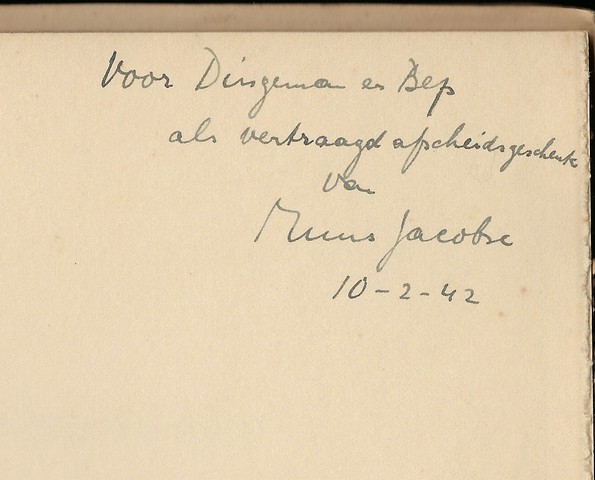 Voor Dingeman en Bep
als vertraagd afscheidsgeschenk
van
Muus Jacobse
10-2-42